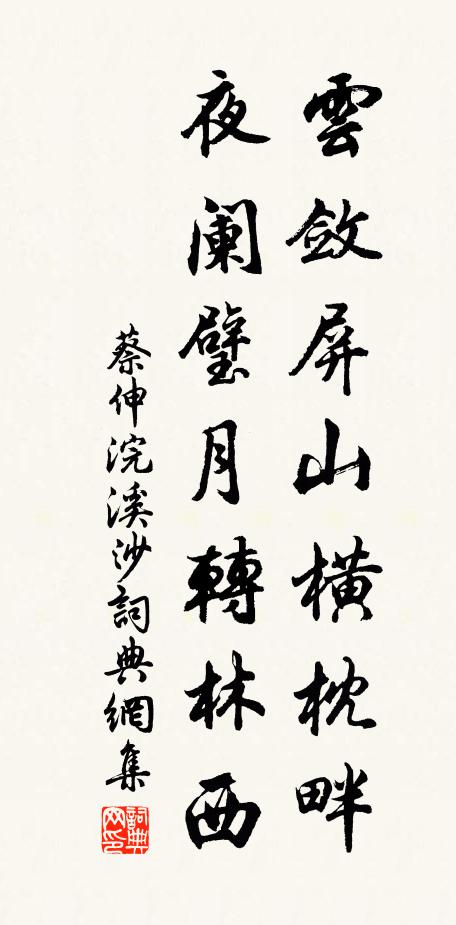 雲斂屏山橫枕畔
夜闌璧月轉林西
蔡伸浣溪沙詞典網集
詞典網印